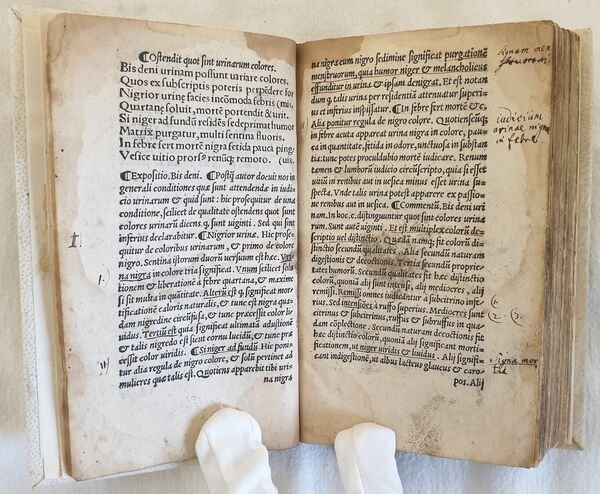 ¶Ostendit quot sint urinarum colores.
Bis deni urinam possunt uariare colores.
Quos ex subscriptis poteris perpēdere for
Nigrior urinæ facies incōmoda febris (mis,
Quartanę soluit, mortē portendit & urit.
Si niger ad fundū resides sedeprimit humor
Matrix purgatur, multi sentina fluoris.
In febre fert mortē nigra fetida pauca pīnguis
Vesicę uitio prorsº renūq; remoto. (uis.
¶Expositio. Bis deni. ¶Postq̃ autor docuit nos in
generali conditiones quæ sunt attendendæ in iudi-
cio urinarum & quid sunt: hic prosequitur de una
conditione, scilicet de qualitate ostendens quot sunt
colores urinarū dicens q. sunt uiginti. Sed qui sint
inferius declarabitur. ¶Nigrior urinæ. Hic prose-
quitur de coloribus urinarum, & primo de colore
nigro. Sentina istorum duorū uersuum est hæc. Vri-
na nigra in colore tria significat. Vnum scilicet solu
tionem & liberationē a febre quartana, & maxime
si sit multa in quātitate. Alterū est q. significat mor-
tificationē caloris naturalis, & tunc est nigra qua-
dam nigredine circūfusa, & tunc præcessit color liui-
dus. Tertiū est quia significat ultimatā adustionē
& talis nigredo est sicut cornu lucidū, & tunc præ-
cessit color uiridis. ¶Si niger ad fundū Hic poni-
tur alia regula de nigro colore, & solū pertinet ad
mulieres quæ talis est. Quotiens apparebit tibi uri-
na nigra
I
1.)
na nigra cum nigro sedimine significat purgationē
menstruorum, quia humor niger & melancholicus
effunditur in urina & ipsam denigrat. Et est notan
dum q. talis urina per residentiā attenuatur superi-
us et inferius inspissatur. ¶In febre fert mortē &c.
Alia ponitur regula de nigro colore. Quotienscūq;
in febre acuta apparet urina nigra in colore, pau-
ca in quantitate, fetida in odore, unctuosa in substan
tia: tunc potes proculdubio mortē iudicare. Renum
tamen & lumborū iudicio circūscripto, quia si esset
uitiū in renibus aut in uesica minus esset urina su-
specta. Vnde talis urina potest apparere ex passio-
ne renibus aut in uesica. ¶Commentū. Bis deni uri
nam. In hoc. c. distinguuntur quot sint colores urina
rum. Sunt autē uiginti. Et est multiplex colorū de-
scriptio uel distinctio. Quædā namq; fit colorū di-
stinctio secundū caloris actionem secundū naturam
digestionis & decoctionis. Tertia secundū proprie-
tates humorū. Secundū qualitates fit hæc distinctio
colorū, quoniā alij sunt intensi, alij mediocres, alij
remissi. Remissi omnes iudicantur a subcitrino infe-
rius. Sed intensiores a ruffo superius. Mediocres sunt
citrinus & subcitrinus, ruffus & subruffus in qua-
dam cōplectione. Secundū naturam decoctionis
fit hæc distinctio colorū, quoniā alij significant morti-
ficationem, ut niger uiridis & liuidus. Alij signifi-
cant indigestionē, ut albus lacteus glaucus & caro-
pos. Alij
signum men
struorum.
iudicium
urinae nigrę
in febre.
(1.
(2. (3.
signa mor
tis